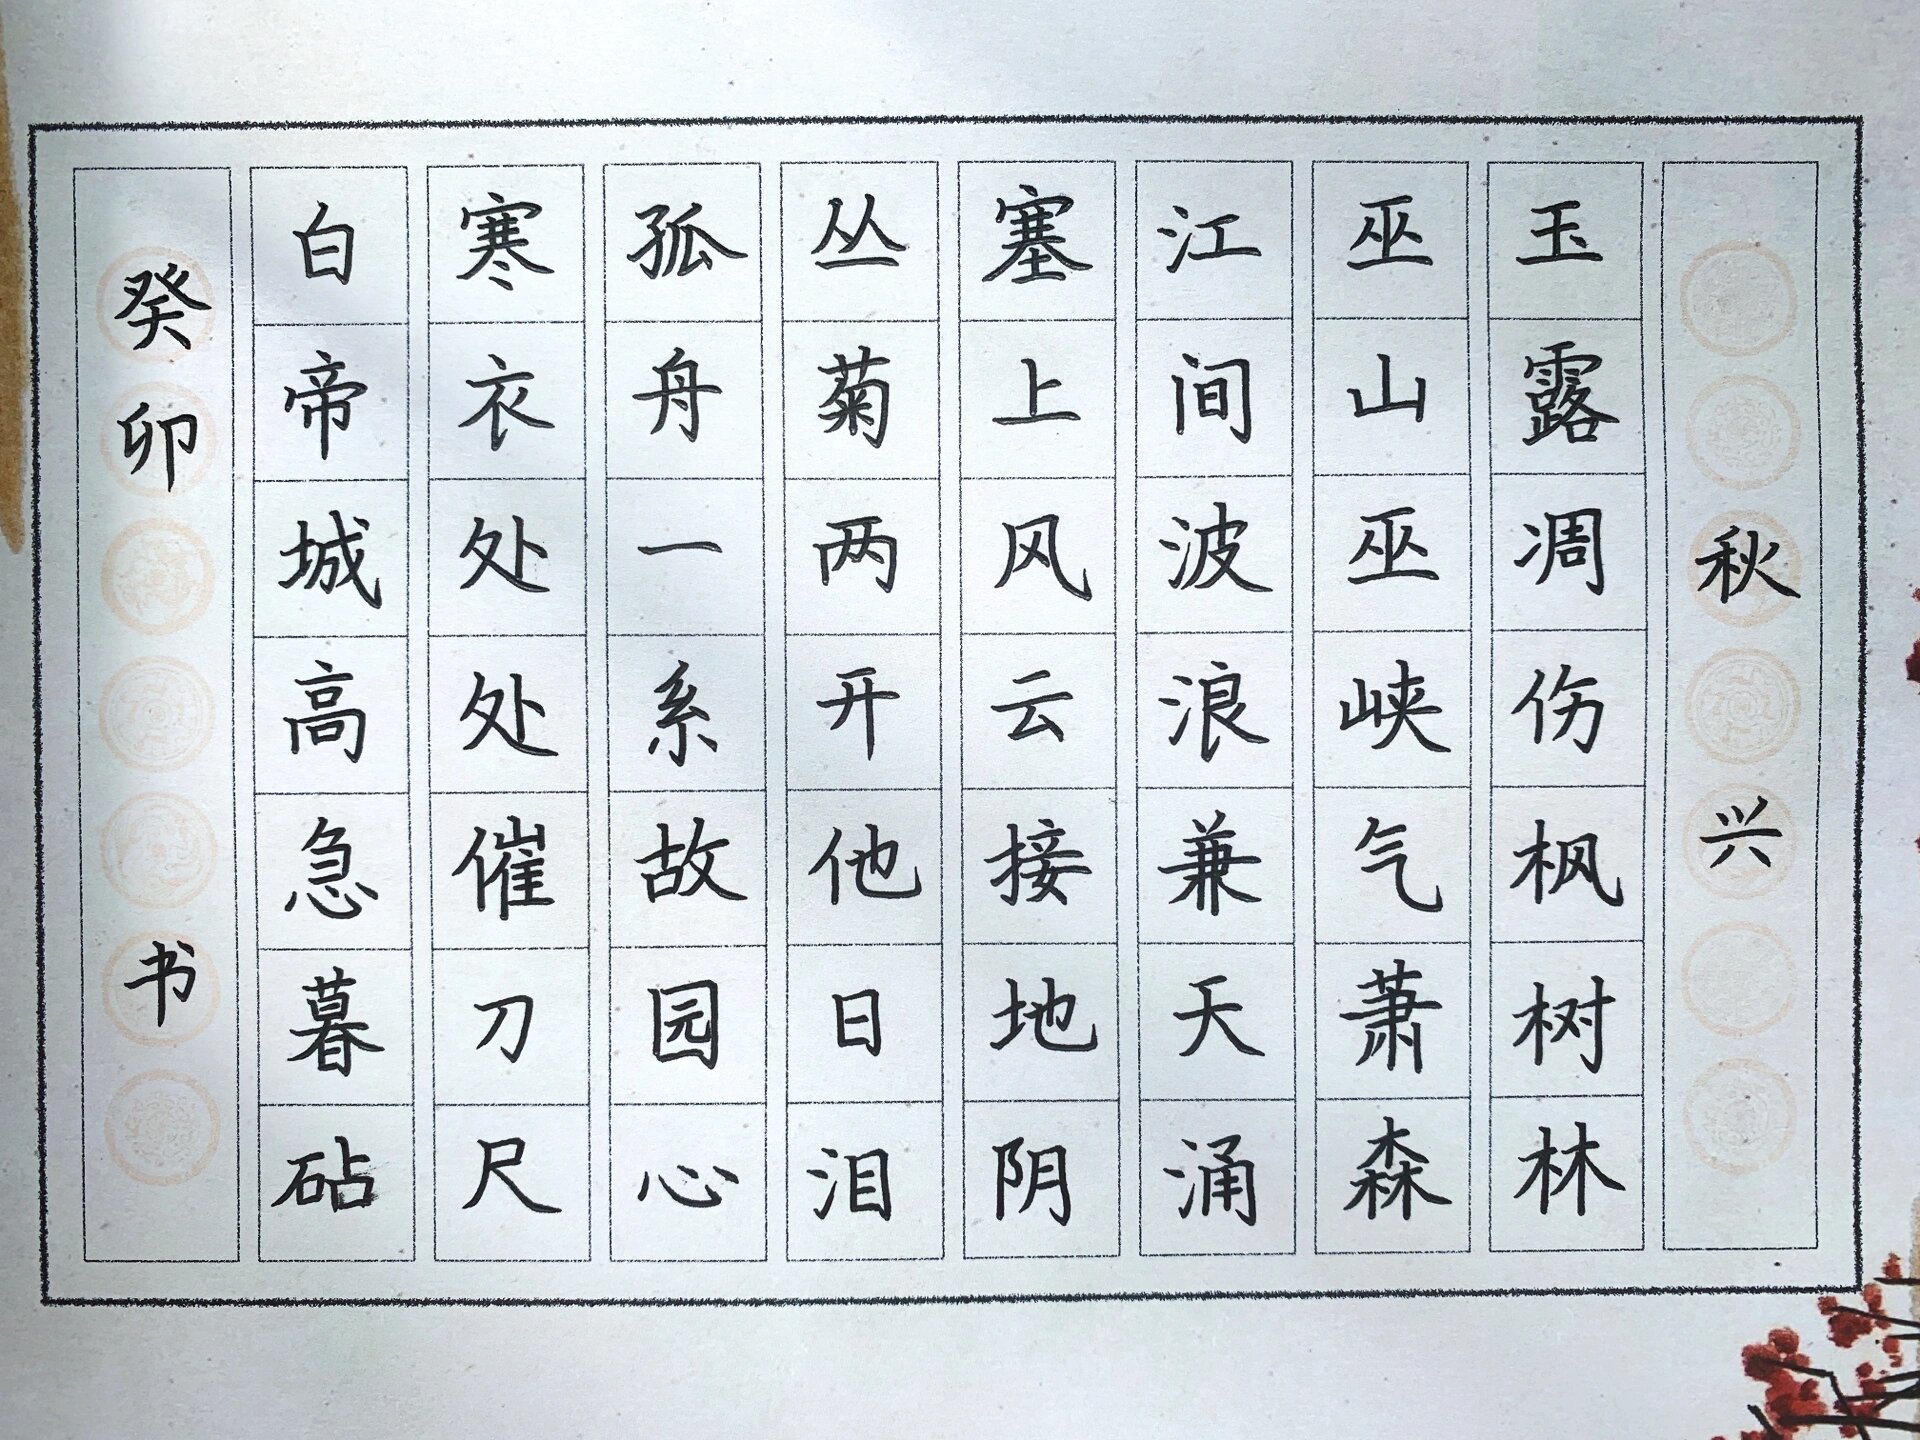 秋兴
玉露凋伤枫树林
巫山巫峡气萧森
江间波浪兼天涌
塞上风云接地阴
丛菊两开他日泪
孤舟一系故园心
寒衣处处催刀尺
白帝城高急暮砧
癸卯书